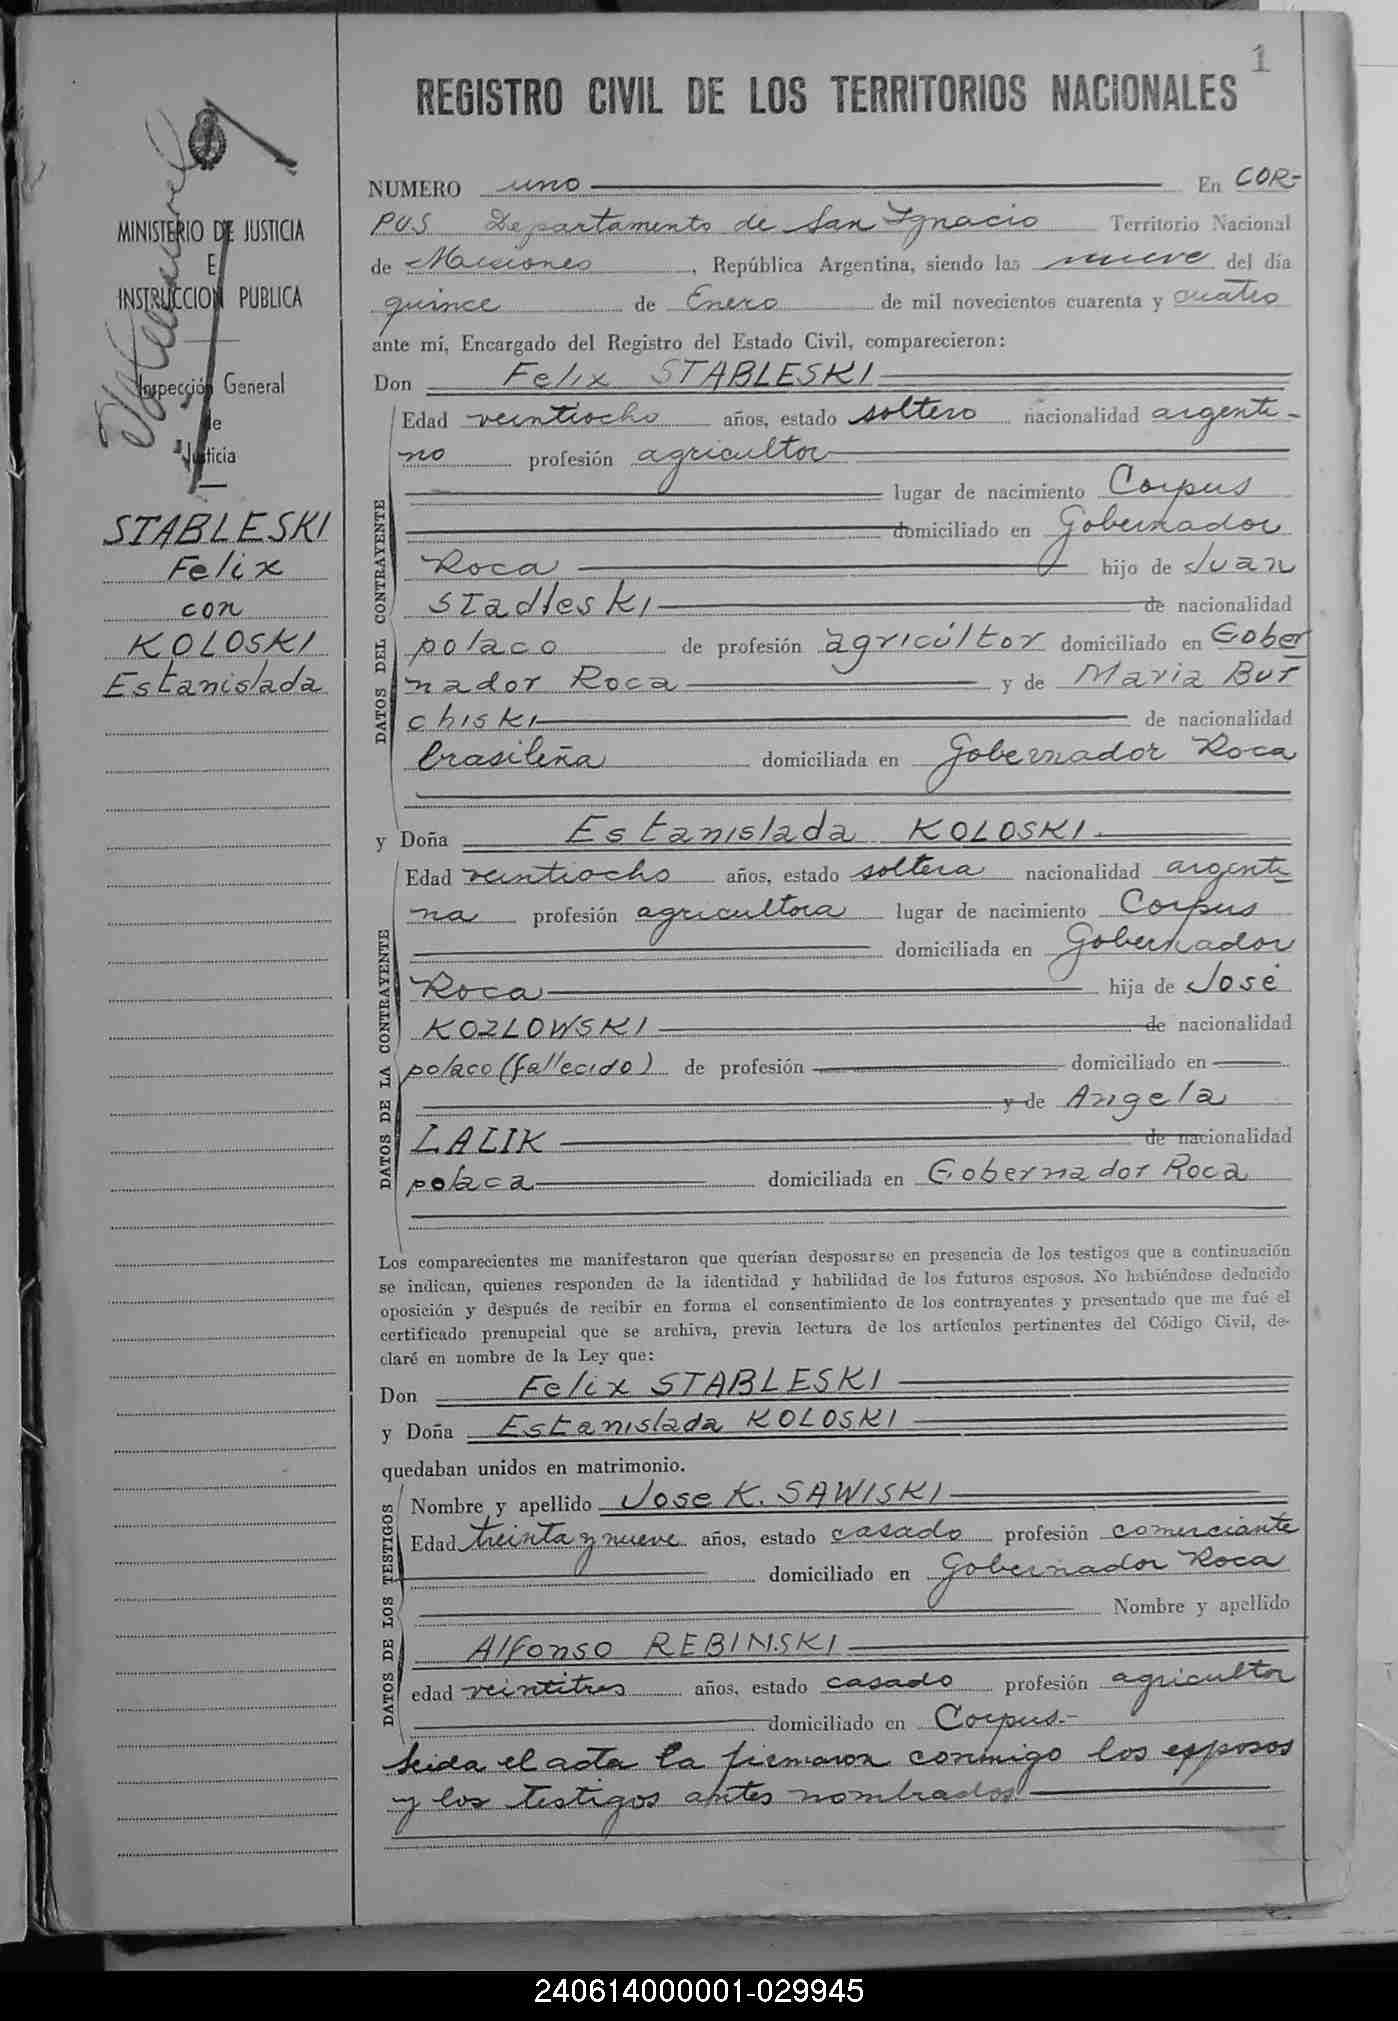 1
REGISTRO CIVIL DE LOS TERRITORIOS NACIONALES
MINISTERIO DE JUSTICIA
E
INSTRUCCION PUBLICA
Inspección General
de
Justicia
STABLESKI
Felix
con
KOLOSKI
Estanislada
NUMERO uno En COR-
PUS Departamento de San Ignacio Territorio Nacional
de Misiones, República Argentina, siendo las nueve del día
quince de Enero de mil novecientos cuarenta y cuatro
ante mí, Encargado del Registro del Estado Civil, comparecieron:
Don Felix STABLESKI
DATOS DEL CONTRAYENTE
Edad veintiocho años, estado soltero nacionalidad argenti-
no profesión agricultor
lugar de nacimiento Corpus
domiciliado en Gobernador
Roca hijo de Juan
STadlesKI de nacionalidad
polaco de profesión agricúltor domiciliado en Gober
nador Roca y de Maria Bur
chiski de nacionalidad
brasileña domiciliada en Gobernador Roca
y Doña Estanislada KOLOSKI
DATOS DE LA CONTRAYENTE
Edad veintiocho años, estado soltera nacionalidad argenti
na profesión agricultora lugar de nacimiento Corpus
domiciliada en Gobernador
Roca hija de José
KOZLOWSKI de nacionalidad
polaco (fallecido) de profesión domiciliado en
y de Angela
LALIK de nacionalidad
polaca domiciliada en Gobernador Roca
Los comparecientes me manifestaron que querían desposarse en presencia de los testigos que a continuación
se indican, quienes responden de la identidad y habilidad de los futuros esposos. No habiéndose deducido
oposición y después de recibir en forma el consentimiento de los contrayentes y presentado que me fué el
certificado prenupcial que se archiva, previa lectura de los artículos pertinentes del Código Civil, de-
claré en nombre de la Ley que:
Don Felix STABLESKI
y Doña Estanislada KOLOSKI
quedaban unidos en matrimonio.
DATOS DE LOS TESTIGOS
Nombre y apellido Jose K. SAWISKI
Edad treinta y nueve años, estado casado profesión comerciante
domiciliado en Gobernador Roca
Nombre y apellido
Alfonso REBINSKI
edad veintitres años, estado casado profesión agricultor
domiciliado en Corpus.-
Leida el acta la firmaron conmigo los esposos
y los testigos antes nombrados
240614000001-029945